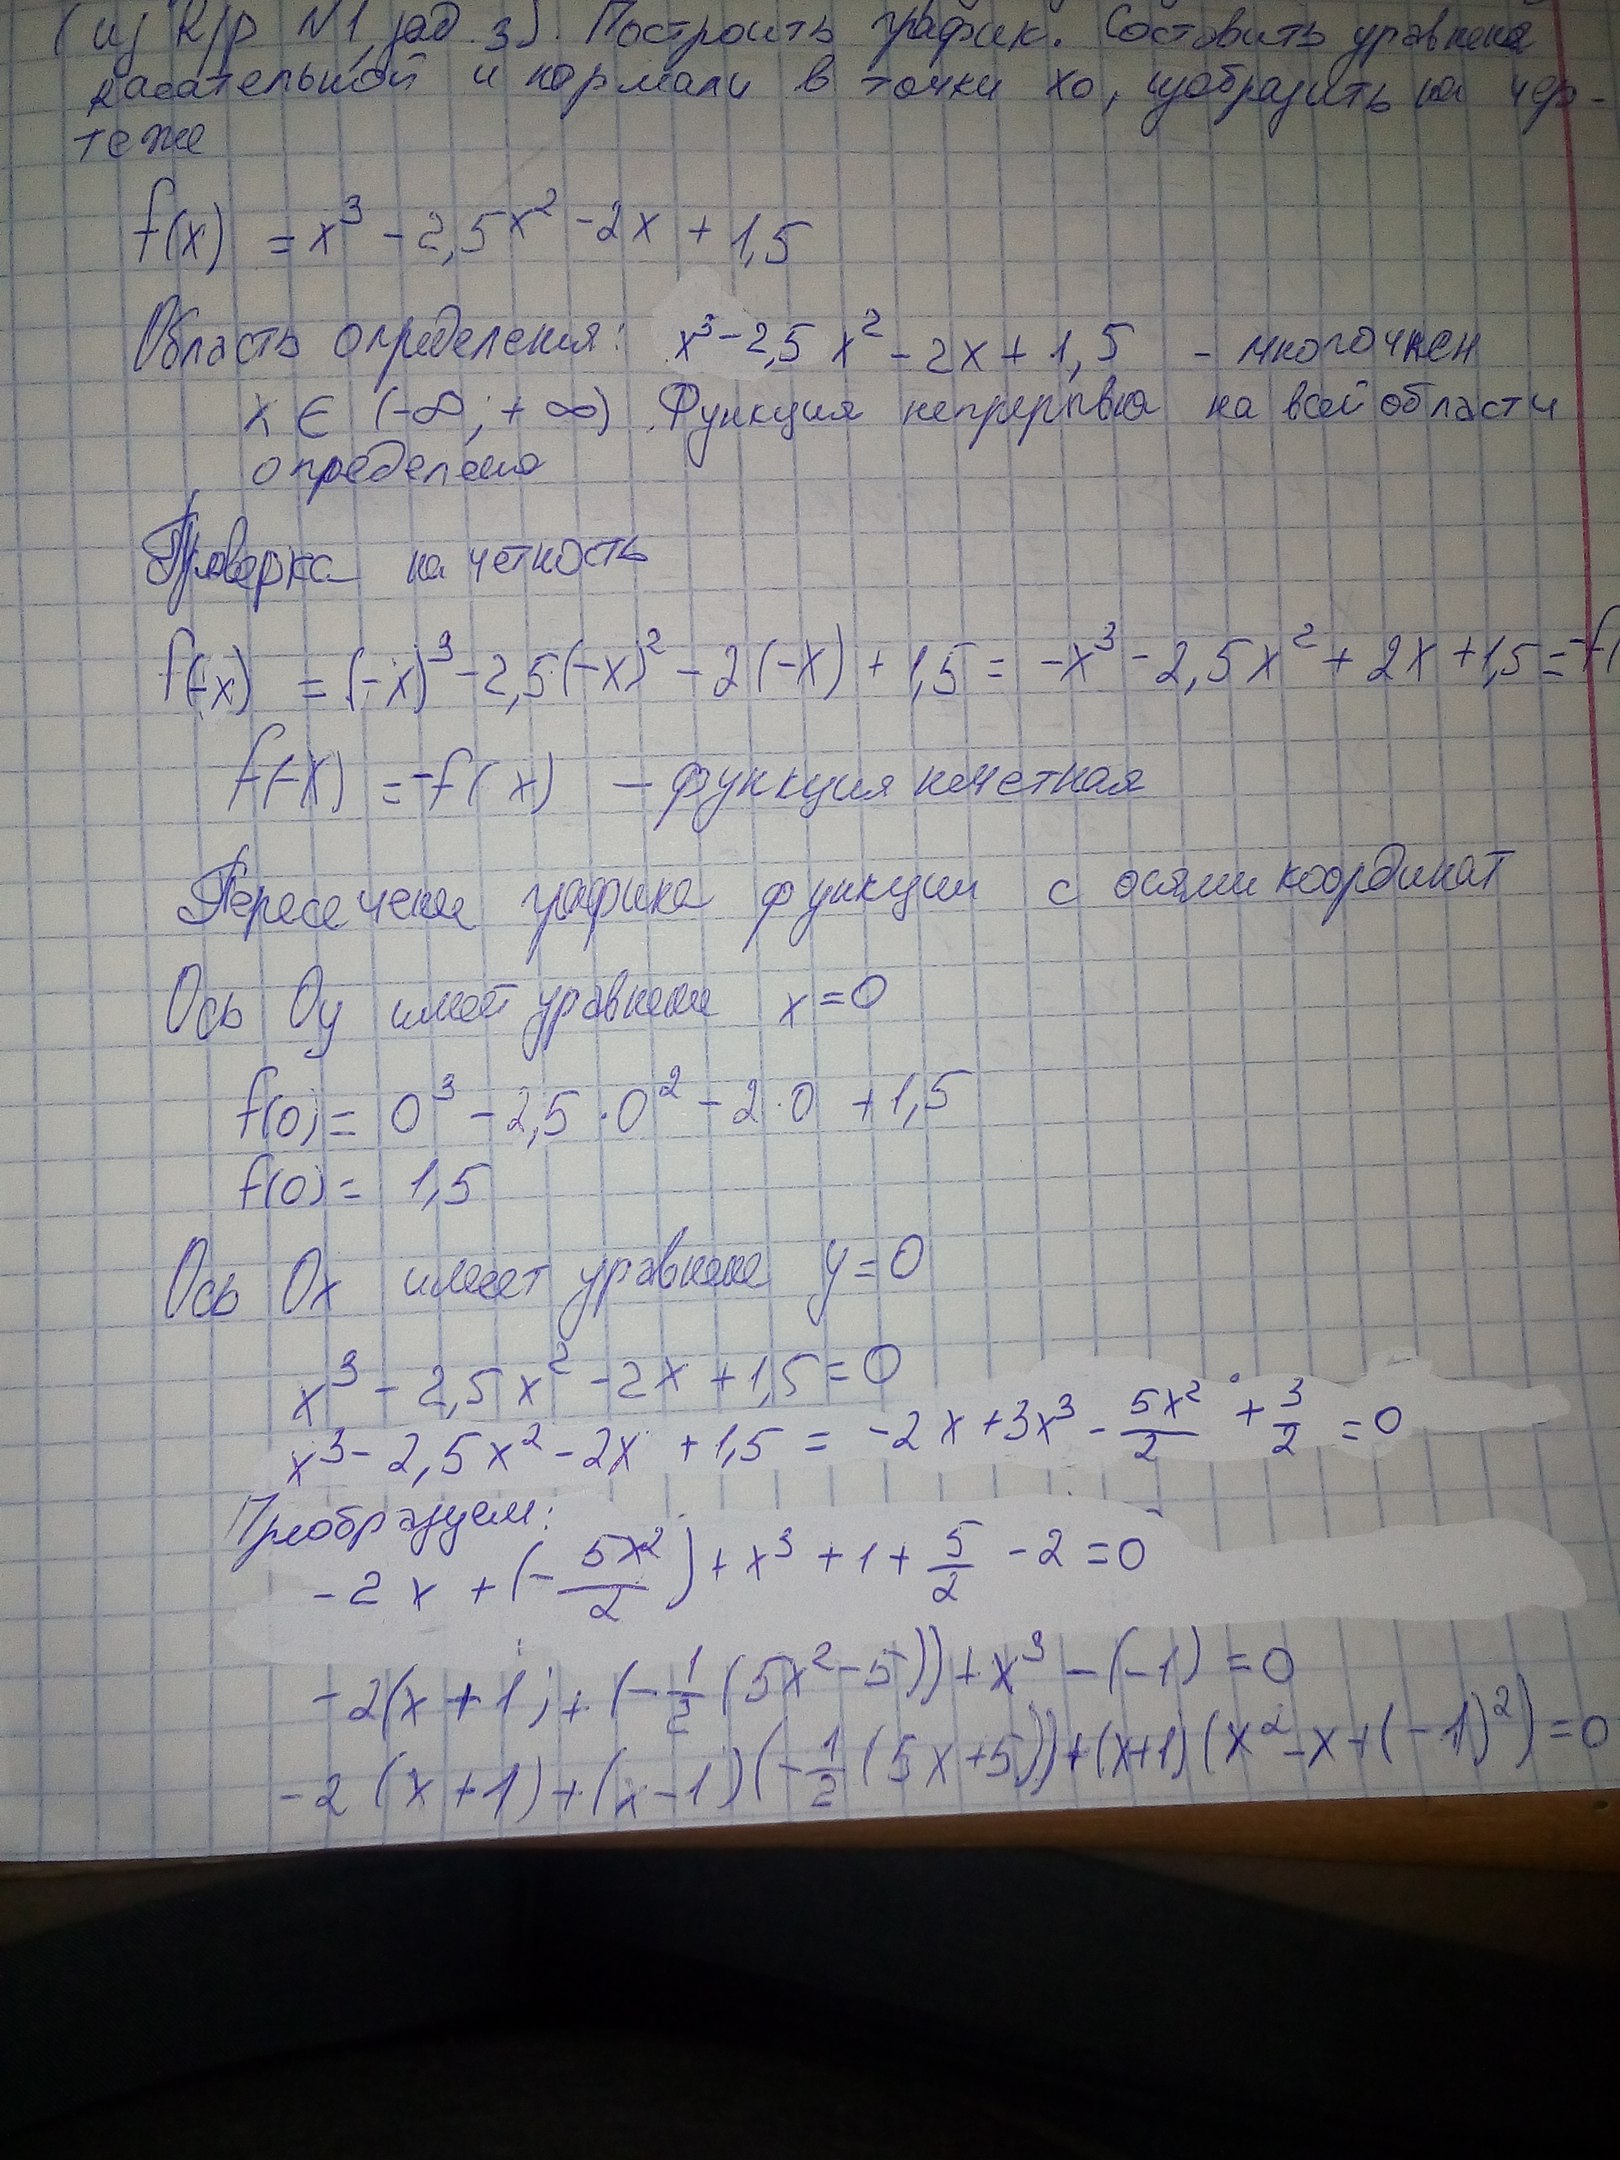 (из К/р №1, зад. 3). Построить график. Составить уравнение
касательной и нормали в точки x0, изобразить на чер-
теже
f(x) = x³ - 2,5x² - 2x + 1,5
Область определения: x³ - 2,5x² - 2x + 1,5 - многочлен
x ∈ (-∞; +∞). Функция непрерывна на всей области
определения
Проверка на четность
f(-x) = (-x)³ - 2,5(-x)² - 2(-x) + 1,5 = -x³ - 2,5x² + 2x + 1,5 = -f(
f(-x) = -f(x) - функция нечетная
Пересечение графика функции с осями координат
Ось Oy имеет уравнение x = 0
f(0) = 0³ - 2,5 · 0² - 2 · 0 + 1,5
f(0) = 1,5
Ось Ox имеет уравнение y = 0
x³ - 2,5x² - 2x + 1,5 = 0
x³ - 2,5x² - 2x + 1,5 = -2x + 3x³ - 5x²/2 + 3/2 = 0
Преобразуем:
-2x + (-5x²/2) + x³ + 1 + 5/2 - 2 = 0
-2(x + 1) + (-1/2 (5x² - 5)) + x³ - (-1) = 0
-2(x + 1) + (x - 1)(-1/2 (5x + 5)) + (x + 1)(x² - x + (-1)²) = 0